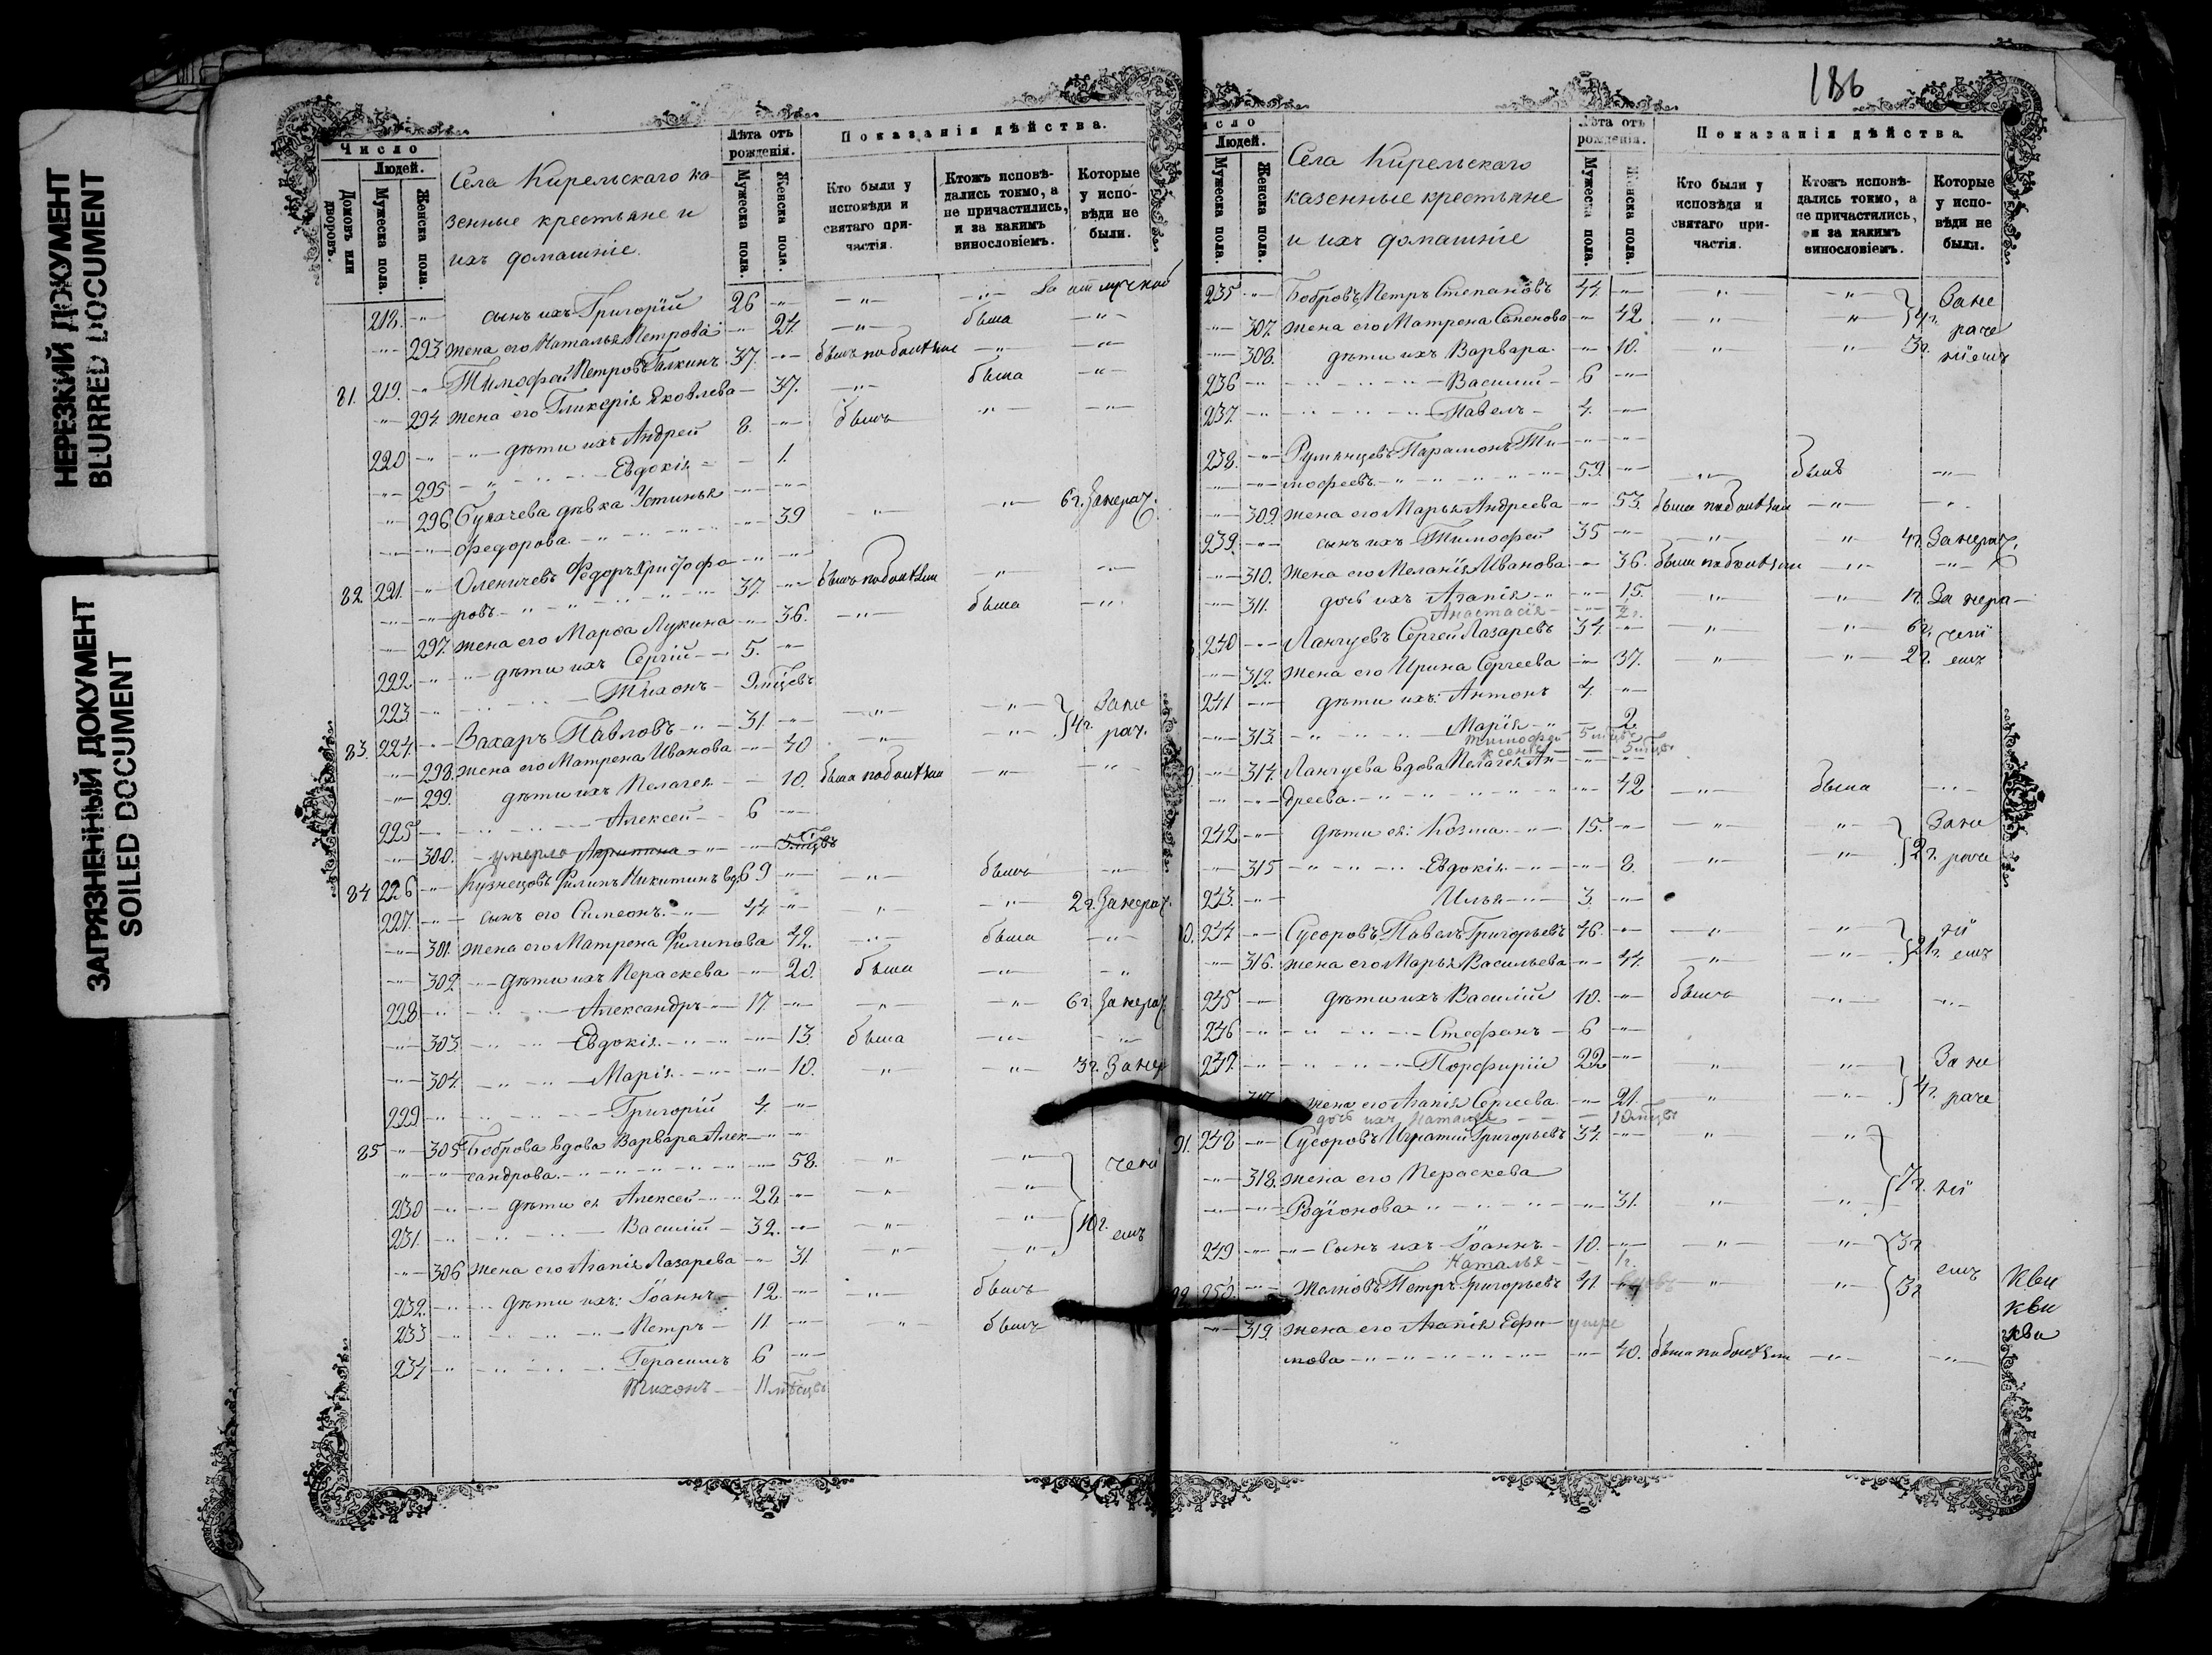 НЕРЕЗКИЙ ДОКУМЕНТ
BLURRED DOCUMENT
ЗАГРЯЗНЕННЫЙ ДОКУМЕНТ
SOILED DOCUMENT
Число
Людей.
Домовъ или дворовъ.
Мужеска пола.
Женска пола.
Села Кирельскаго ка-
зенные крестьяне и
ихъ домашніе.
Лѣта отъ рожденія.
Мужеска пола.
Женска пола.
Показанія дѣйства.
Кто были у исповѣди и святаго при-частія.
Ктожъ исповѣ-дались токмо, а не причастились, и за какимъ винословіемъ.
Которые у испо-вѣди не были.
218. сынъ ихъ Григорій 26 За отлучкой
293 жена его Наталья Петрова 24. была
81. 219. Тимофей Петровъ Галкинъ 37. былъ по болѣзни
294. жена его Гликерія Яковлева 37. была
220 дѣти ихъ Андрей 8. былъ
295 Евдокія 1.
296 Булхчева дѣвка Устинья
Федорова 39 6 г. За нерач.
82. 221. Оленичевъ Ѳедоръ Христофо-
ровъ 37. былъ по болѣзни
297. жена его Марѳа Лукина 36. была
222 дѣти ихъ Сергій 5.
223 Тихонъ 9 мѣцевъ
83. 224. Захаръ Павловъ 31. За не
298. жена его Матрена Иванова 40 4 г. рач.
299. дѣти ихъ Пелагея 10. была по болѣзни
225 Алексей 6
300. умерла Агрипина 5 мѣцвъ
84 226 Кузнецовъ Филипъ Никитинъ вд. 69 былъ
227. сынъ его Симеонъ 44 2 г. За нерач.
301. жена его Матрена Филипова 42. была
302. дѣти ихъ Пераскева 20. была
228 Александръ 17. 6 г. За нерач.
303. Евдокія 13. была
304. Марія 10. 3 г. За нер
229 Григорій 4.
85 305 Боброва вдова Варвара Алек-
сандрова 58. чені
230 дѣти ея Алексей 28.
231. Василій 32. 10 г. емъ
306 жена его Агапія Лазарева 31.
232. дѣти ихъ: Іоаннъ 12. былъ
233 Петръ 11. былъ
234 Герасимъ 6
Тихонъ 11 мѣсцвъ
186
исло
Людей.
Мужеска пола.
Женска пола.
Села Кирельскаго
казенные крестьяне
и ихъ домашніе
Лѣта отъ рожденія.
Мужеска пола.
Женска пола.
Показанія дѣйства
Кто были у исповѣди и святаго при-частія.
Ктожъ исповѣ-дались токмо, а не причастились, и за какимъ винословіемъ.
Которые у испо-вѣди не были.
235 Бобровъ Петръ Степановъ 44. За не
307. жена его Матрена Семенова 42 4 г. раче
308. дѣти ихъ Варвара 10. 3 г. ніемъ
236 Василій 6
237. Павелъ 4.
238. Румянцевъ Парамонъ Ти-
мофеевъ 59. былъ
309. жена его Марья Андреева 53. была по болѣзни
239. сынъ ихъ Тимофей 35 4 г. За нерач.
310. жена его Меланія Иванова 36. была по болѣзни
311. дочь ихъ Агапія 15. 1 г. За нера-
Анастасія 2 г.
240 Лангуевъ Сергей Лазаревъ 34. 6 г. чені
312. жена его Ирина Сергеева 37. 2 г. емъ
241 дѣти ихъ: Антонъ 4.
313. Марія 2
Тимофей 5 мцвъ
Ксенія 5 мцвъ
314. Лангуева вдова Пелагея Ан-
дреева 42 была
242 дѣти ея: Козма 15. За не
315 Евдокія 8. 2 г. раче
243. Илья 3.
244 Сусоровъ Павелъ Григорьевъ 46. ні
316. жена его Марья Васильева 44. 2 г. емъ
245 дѣти ихъ Василій 10. былъ
246 Стефанъ 6
247. Порфирій 22 За не
317. жена его Агапія Сергеева 21. 4 г. раче
дочь ихъ Наталья 10 мцвъ
91. 248 Сусоровъ Игнатій Григорьевъ 34.
318. жена его Пераскева
Родіонова 31. 7 г. ні
249 сынъ ихъ Іоаннъ 10. 3 г.
Наталья 1 г.
92 250. Желновъ Петръ Григорьевъ 41 3 г. емъ
319. жена его Агапія Ефи- умре
мова 40. была по болѣзни
Кви
кви
кви